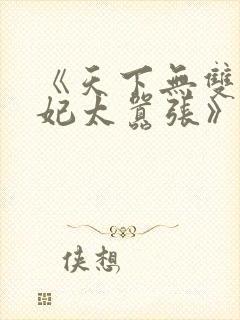 《天下無雙
妃太囂張》
侠想